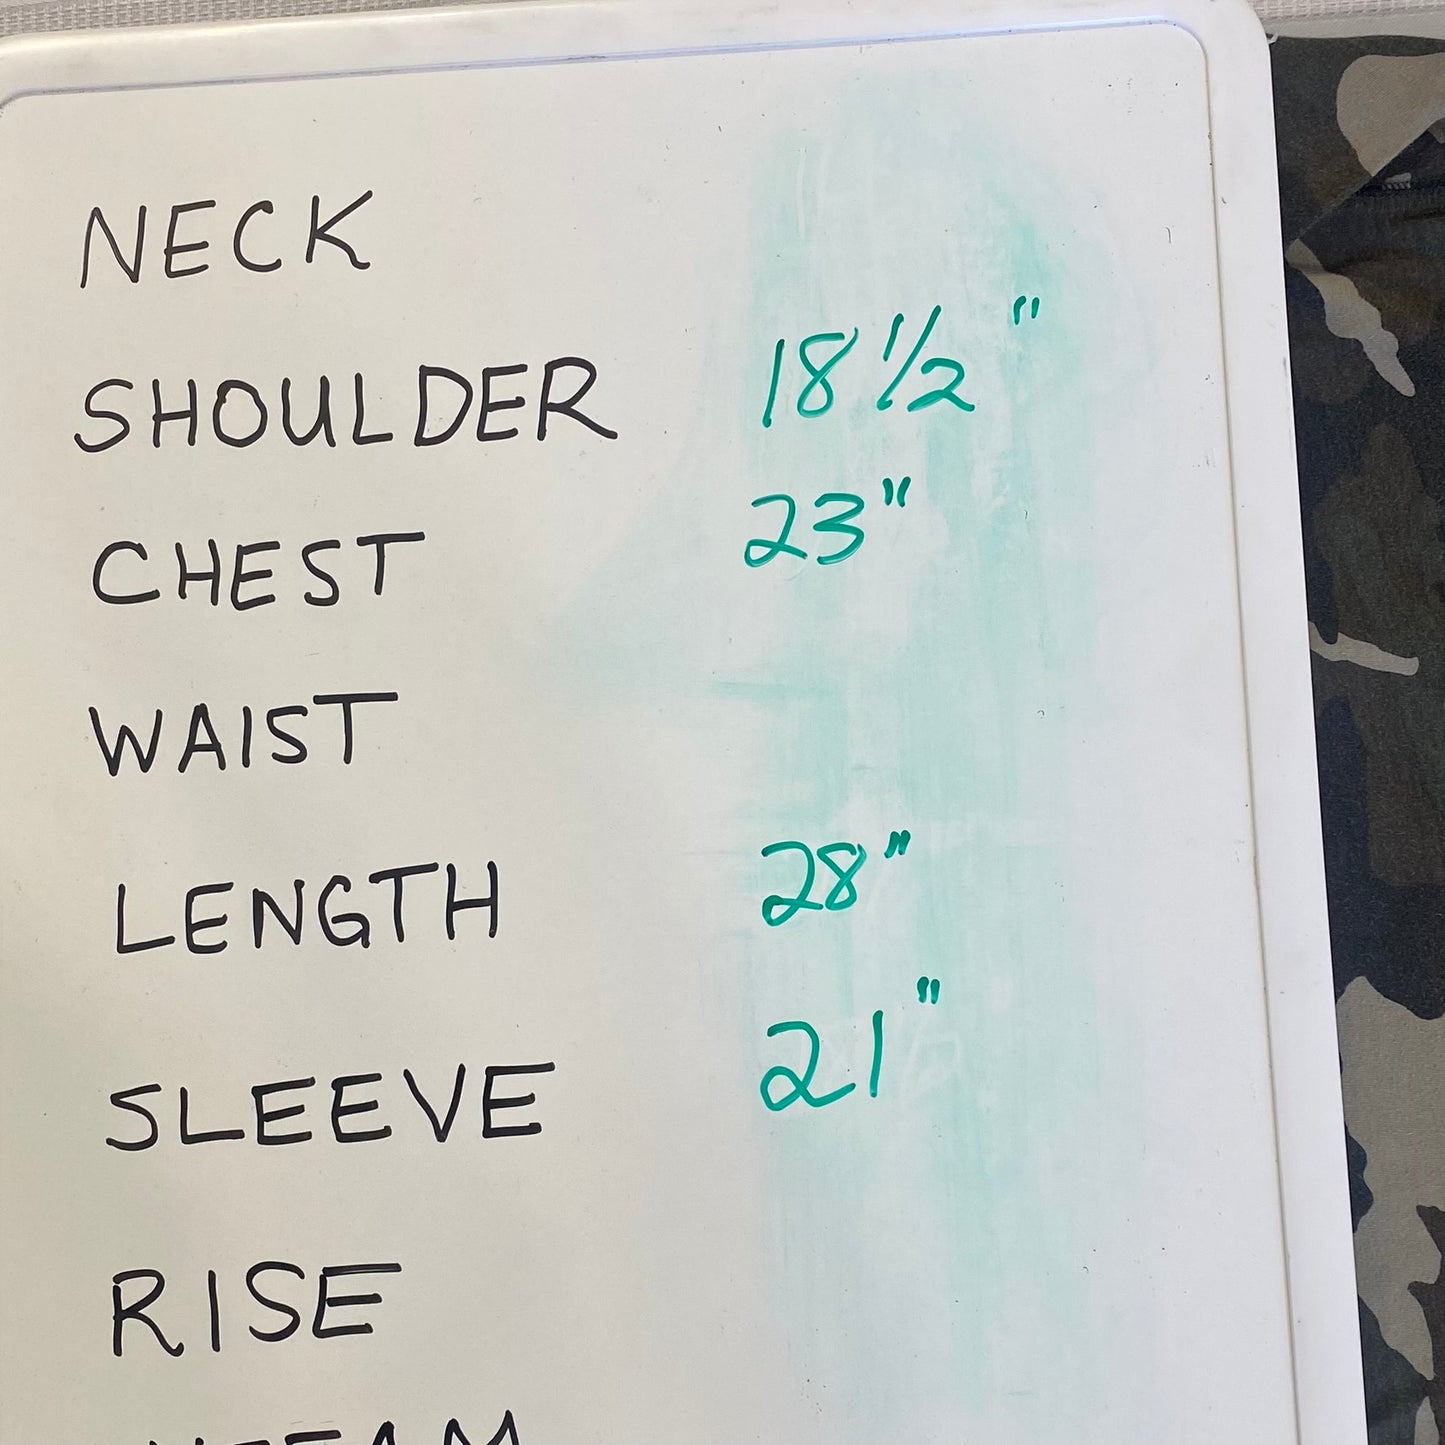 NECK
SHOULDER 18 1/2 "
CHEST 23"
WAIST
LENGTH 28"
SLEEVE 21"
RISE